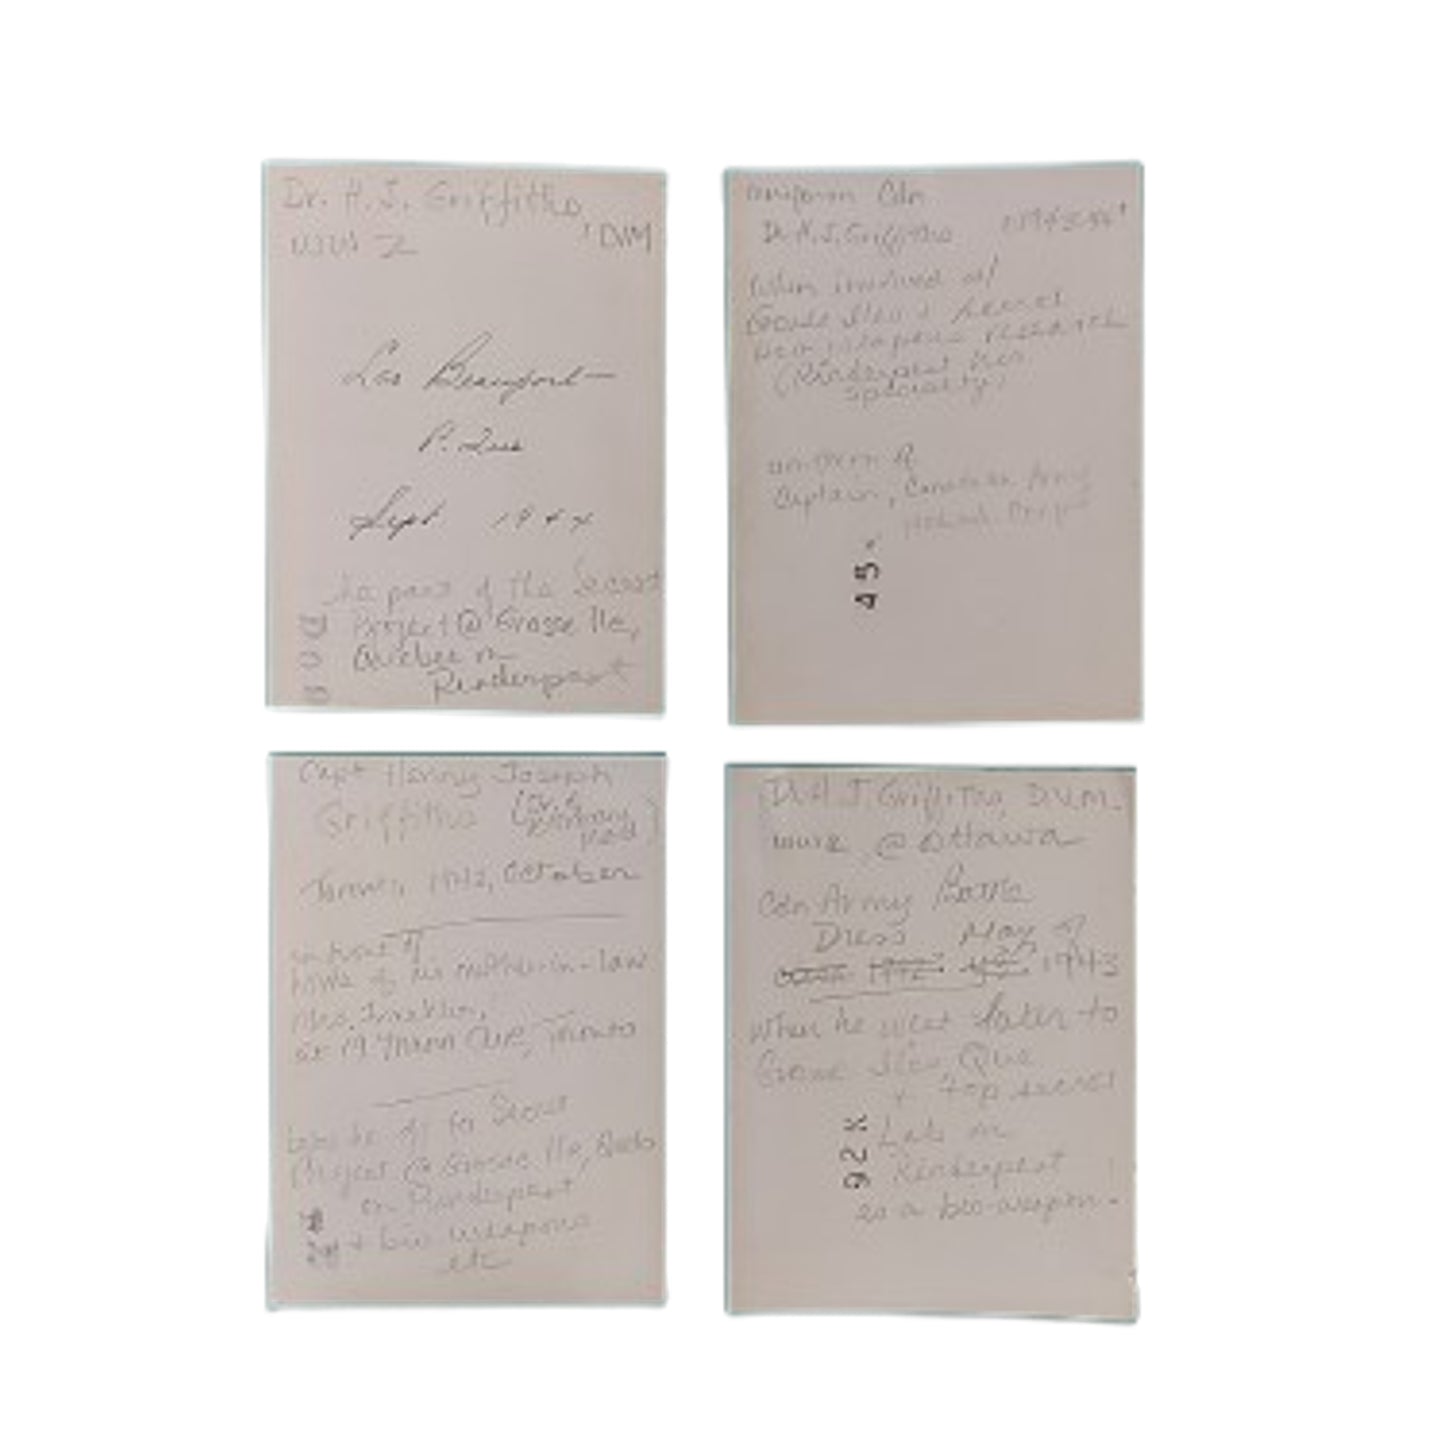 Dr. H. J. Griffiths,
DVM
Lac Beauport
P. Que
Sept 1944
he part of the Secret
Project @ Grosse Ile,
Quebec on
Rinderpest
uniform Cdn
Dr. H. J. Griffiths
When involved w/
Grosse Ile & secret
bio weapons research
(Rinderpest his
speciality)
uniform of
Captain, Canadian Army
45.
Capt Henry Joseph
Griffiths
Toronto, 1942, October
in front of
home of his mother-in-law
Mrs. Franklin,
at 19 Mann Ave, Toronto
before off to Secret
Project @ Grosse Ile, Quebec
on Rinderpest
+ bio weapons
etc
Dr. H. J. Griffiths, D.V.M.
@ Ottawa
Cdn Army Battle
Dress May of
1943
When he went later to
Grosse Ile, Que
+ top secret
Lab on
Rinderpest
as a bio-weapon.
92X